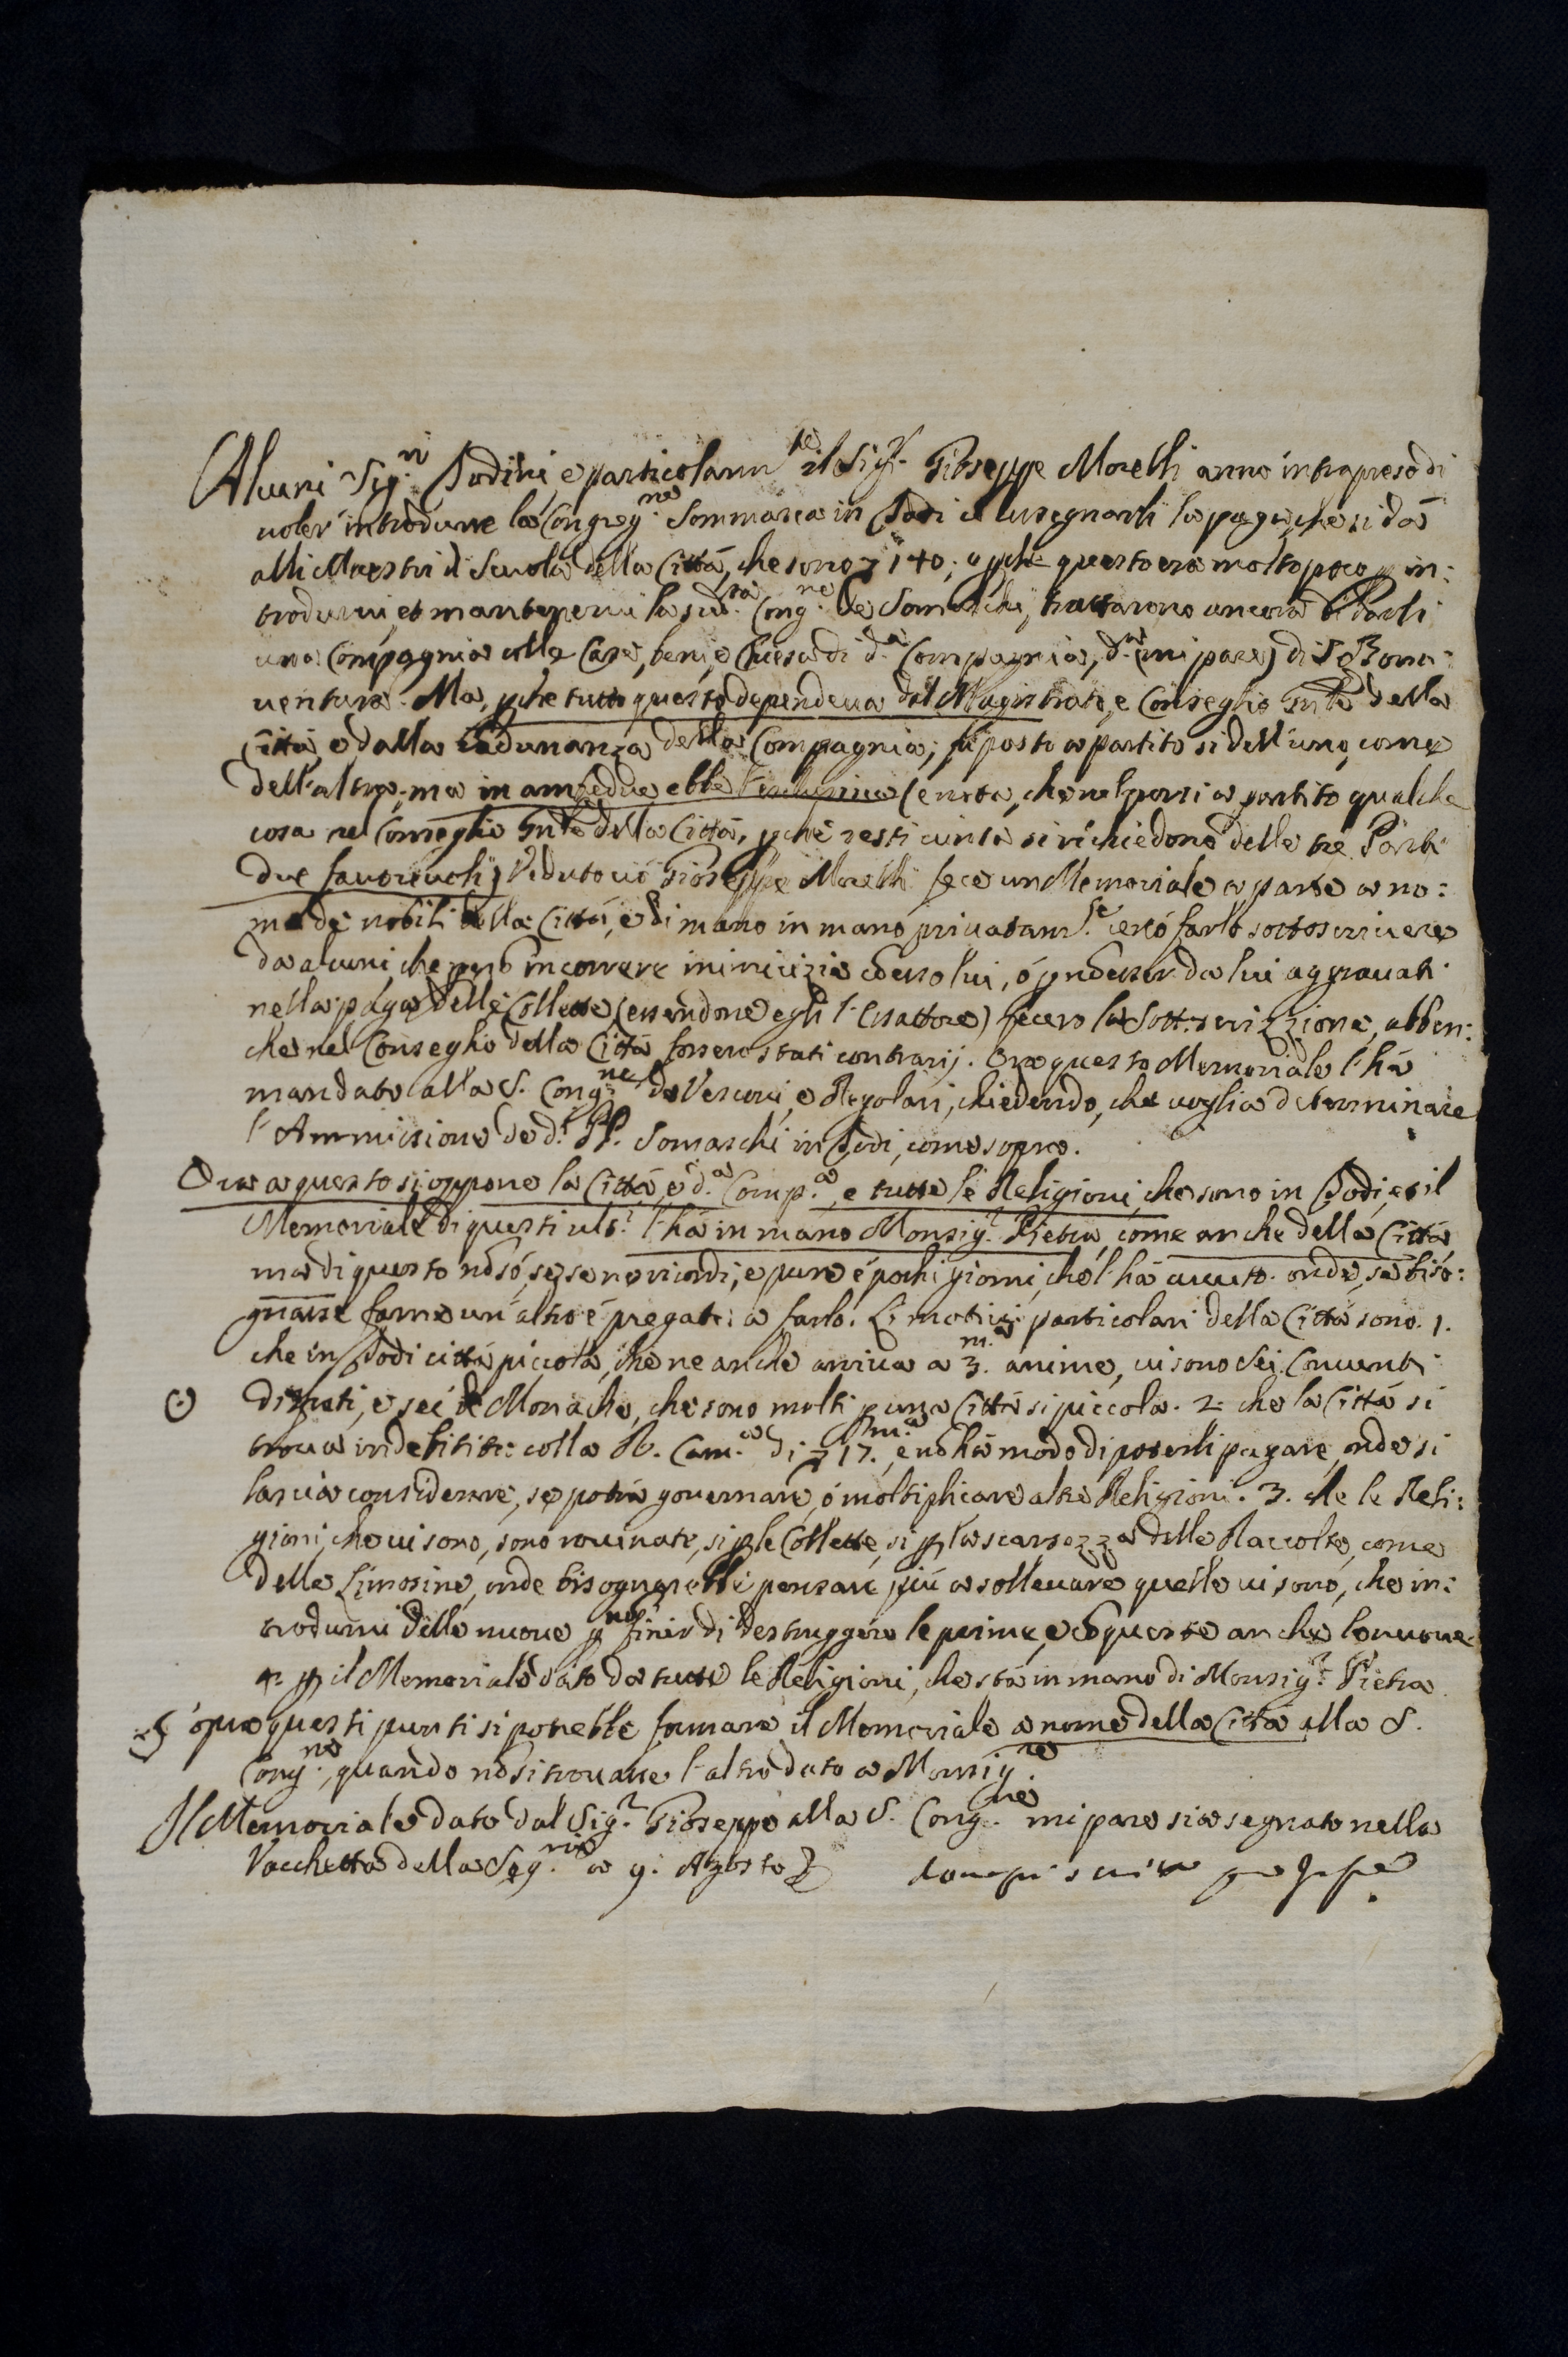 Alcuni Sig.ri Todini, e particolarm.te il Sig.r Gioseppe Morelli anno intrapreso di
voler introdurre la Congreg.ne Sommasca in Todi è assegnarli la paga, che si dà
alli Maestri di Scuola della Città, che sono 140; e p̱che questo era molto poco p̱ in:
trodurvi, et mantenervi la sud.ta Cong.ne de Somaschi, trattarono ancora di darli
una Compagnia colle Case, beni, e Chiesa di d.a Compagnia, d.a (mi pare) di S. Bona:
ventura. Ma, p̱che tutto questo dependeva dal Magistrato, e Conseglio Gn̄le della
Città, e dalla Radunanza della Compagnia; fù posto a partito sì dell'uno, come
dell'altra, ma in ambedue ebbe l'esclusiva (e nota, che nel porsi a partito qualche
cosa nel Conseglio Gn̄le della Città, p̱chè resti vinta si richiedono delle trè Parti
due favorevoli) Veduto ciò Gioseppe Morelli fece un Memoriale a parte a no:
me dè nobili della Città, e di mano in mano privatam.te cercò farlo sottoscrivere
da alcuni, che per nō incorrere inimicizia cō esso lui, ò p̱ nō esser da lui aggravati
nella paga delle Collette (essendone egli l'Esattore) fecero la Sottoscrizzione, abben:
che nel Conseglio della Città fossero stati contrarij. Ora questo Memoriale l'hà
mandato alla S. Cong.ne de Vescovi, e Regolari, chiedendo, che voglia determinare
l'Ammissione de d.i PP. Somaschi in Todi, come sopra.
Ora a questo si oppone la Città, e d.a Comp.a, e tutte le Religioni, che sono in Todi, et il
Memoriale di questi ult.i l'hà in mano Monsig.r Pietra, come anche della Città
ma di questo nō sò, se se ne ricordi, e pure è pochi giorni, che l'hà avuto. onde, se biso:
gnasse farne un'altro è pregato a farlo. Li motivi particolari della Città sono. 1.
che in Todi città piccola, che ne anche arriva a 3.m anime, vi sono sei Conventi
di Frati, e sei di Monache, che sono molti p̱ una Città si piccola. 2. che la Città si
trova indebitita colla R. Cam.a di 17.m, e nō hà modo di poterli pagare, onde si
lascia considerare, se potrà governare, ò moltiplicare altre Religioni. 3. che le Reli:
gioni, che vi sono, sono rovinate, si p̱ le Collette, si p̱ la scarsezza delle Raccolte, come
delle Limosine, onde bisognarebbe pensare più a sollevare quelle vi sono, che in:
trodurvi delle nuove p̱ nō finir di destruggere le prime, e cō queste anche le nuove.
4. p̱ il Memoriale dato da tutte le Religioni, che stà in mano di Monsig.r Pietra
Sopra questi punti si potrebbe formare il Memoriale a nome della Città alla S.
Cong.ne, quando nō si trovasse l'altro dato a Monsig.re
Il Memoriale dato dal Sig.r Gioseppe alla S. Cong.ne mi pare sia segnato nella
Vacchetta della Seg.ria a 9. Agosto